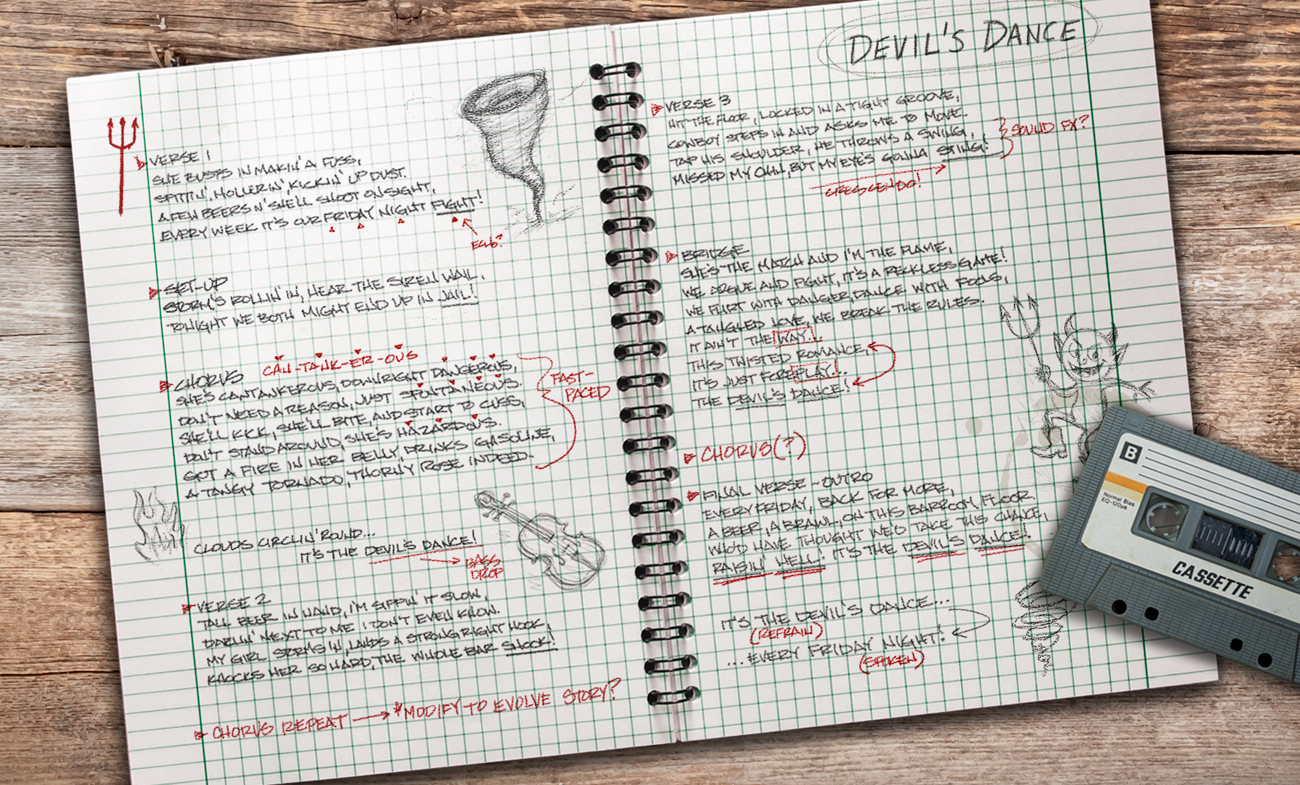 DEVIL'S DANCE
VERSE 1
SHE BUSTS IN MAKIN' A FUSS,
SPITTIN', HOLLERIN', KICKIN' UP DUST.
A FEW BEERS N' SHE'LL SHOOT ON SIGHT,
EVERY WEEK IT'S OUR FRIDAY NIGHT FIGHT!
ECHO?
SET-UP
STORM'S ROLLIN' IN, HEAR THE SIREN WAIL,
TONIGHT WE BOTH MIGHT END UP IN JAIL!
CAN-TANK-ER-OUS
CHORUS
SHE'S CANTANKEROUS, DOWNRIGHT DANGEROUS,
DON'T NEED A REASON, JUST SPONTANEOUS.
SHE'LL KICK, SHE'LL BITE, AND START TO CUSS,
DON'T STAND AROUND, SHE'S HAZARDOUS.
GOT A FIRE IN HER BELLY, DRINKS GASOLINE,
A TANGY TORNADO, THORNY ROSE INDEED.
FAST-
PACED
CLOUDS CIRCLIN' 'ROUND...
IT'S THE DEVIL'S DANCE!
BASS
DROP
VERSE 2
TALL BEER IN HAND, I'M SIPPIN' IT SLOW,
DARLIN' NEXT TO ME I DON'T EVEN KNOW.
MY GIRL STORMS IN, LANDS A STRONG RIGHT HOOK,
KNOCKS HER SO HARD, THE WHOLE BAR SHOOK!
CHORUS REPEAT → *MODIFY TO EVOLVE STORY?
VERSE 3
HIT THE FLOOR, LOCKED IN A TIGHT GROOVE,
COWBOY STEPS IN AND ASKS ME TO MOVE.
TAP HIS SHOULDER, HE THROWS A SWING,
MISSED MY CHIN, BUT MY EYE'S GONNA STING!
SOUND FX?
CRESCENDO!
BRIDGE
SHE'S THE MATCH AND I'M THE FLAME,
WE ARGUE AND FIGHT, IT'S A RECKLESS GAME!
WE FLIRT WITH DANGER, DANCE WITH FOOLS,
A TANGLED LOVE, WE BREAK THE RULES.
IT AIN'T THE WAY!
THIS TWISTED ROMANCE,
IT'S JUST FOREPLAY!..
THE DEVIL'S DANCE!
CHORUS(?)
FINAL VERSE - OUTRO
EVERY FRIDAY, BACK FOR MORE,
A BEER, A BRAWL, ON THIS BARROOM FLOOR.
WHO'D HAVE THOUGHT WE'D TAKE THIS CHANCE,
RAISIN' HELL! IT'S THE DEVIL'S DANCE!
IT'S THE DEVIL'S DANCE...
(REFRAIN)
...EVERY FRIDAY NIGHT!
(SPOKEN)
B
Normal Bias
CASSETTE